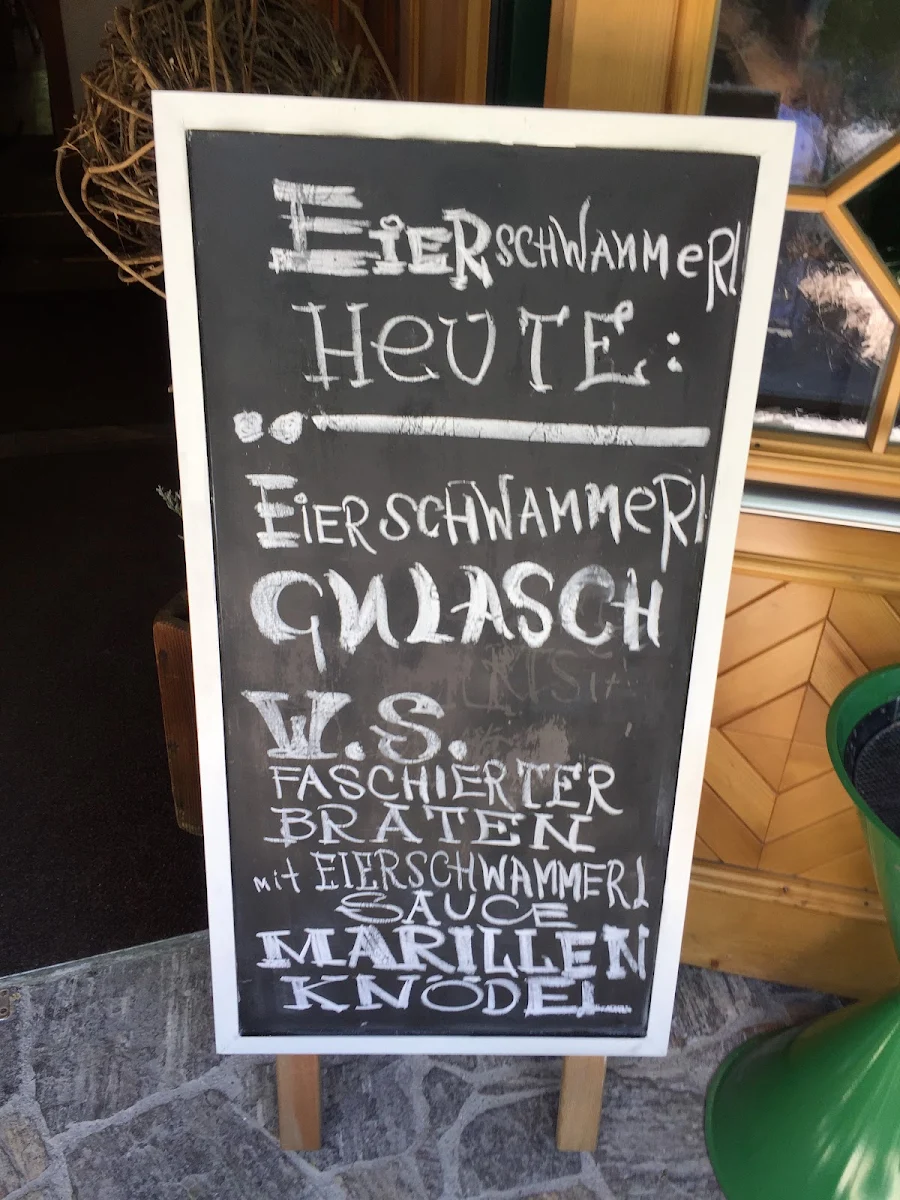 EierschwammerL
HeUTE:
EierschwammerL
GULASCH
W.S.
FASCHIERTER
BRATEN
mit EIERSCHWAMMERL
SAUCE
MARILLEN
KNÖDEL